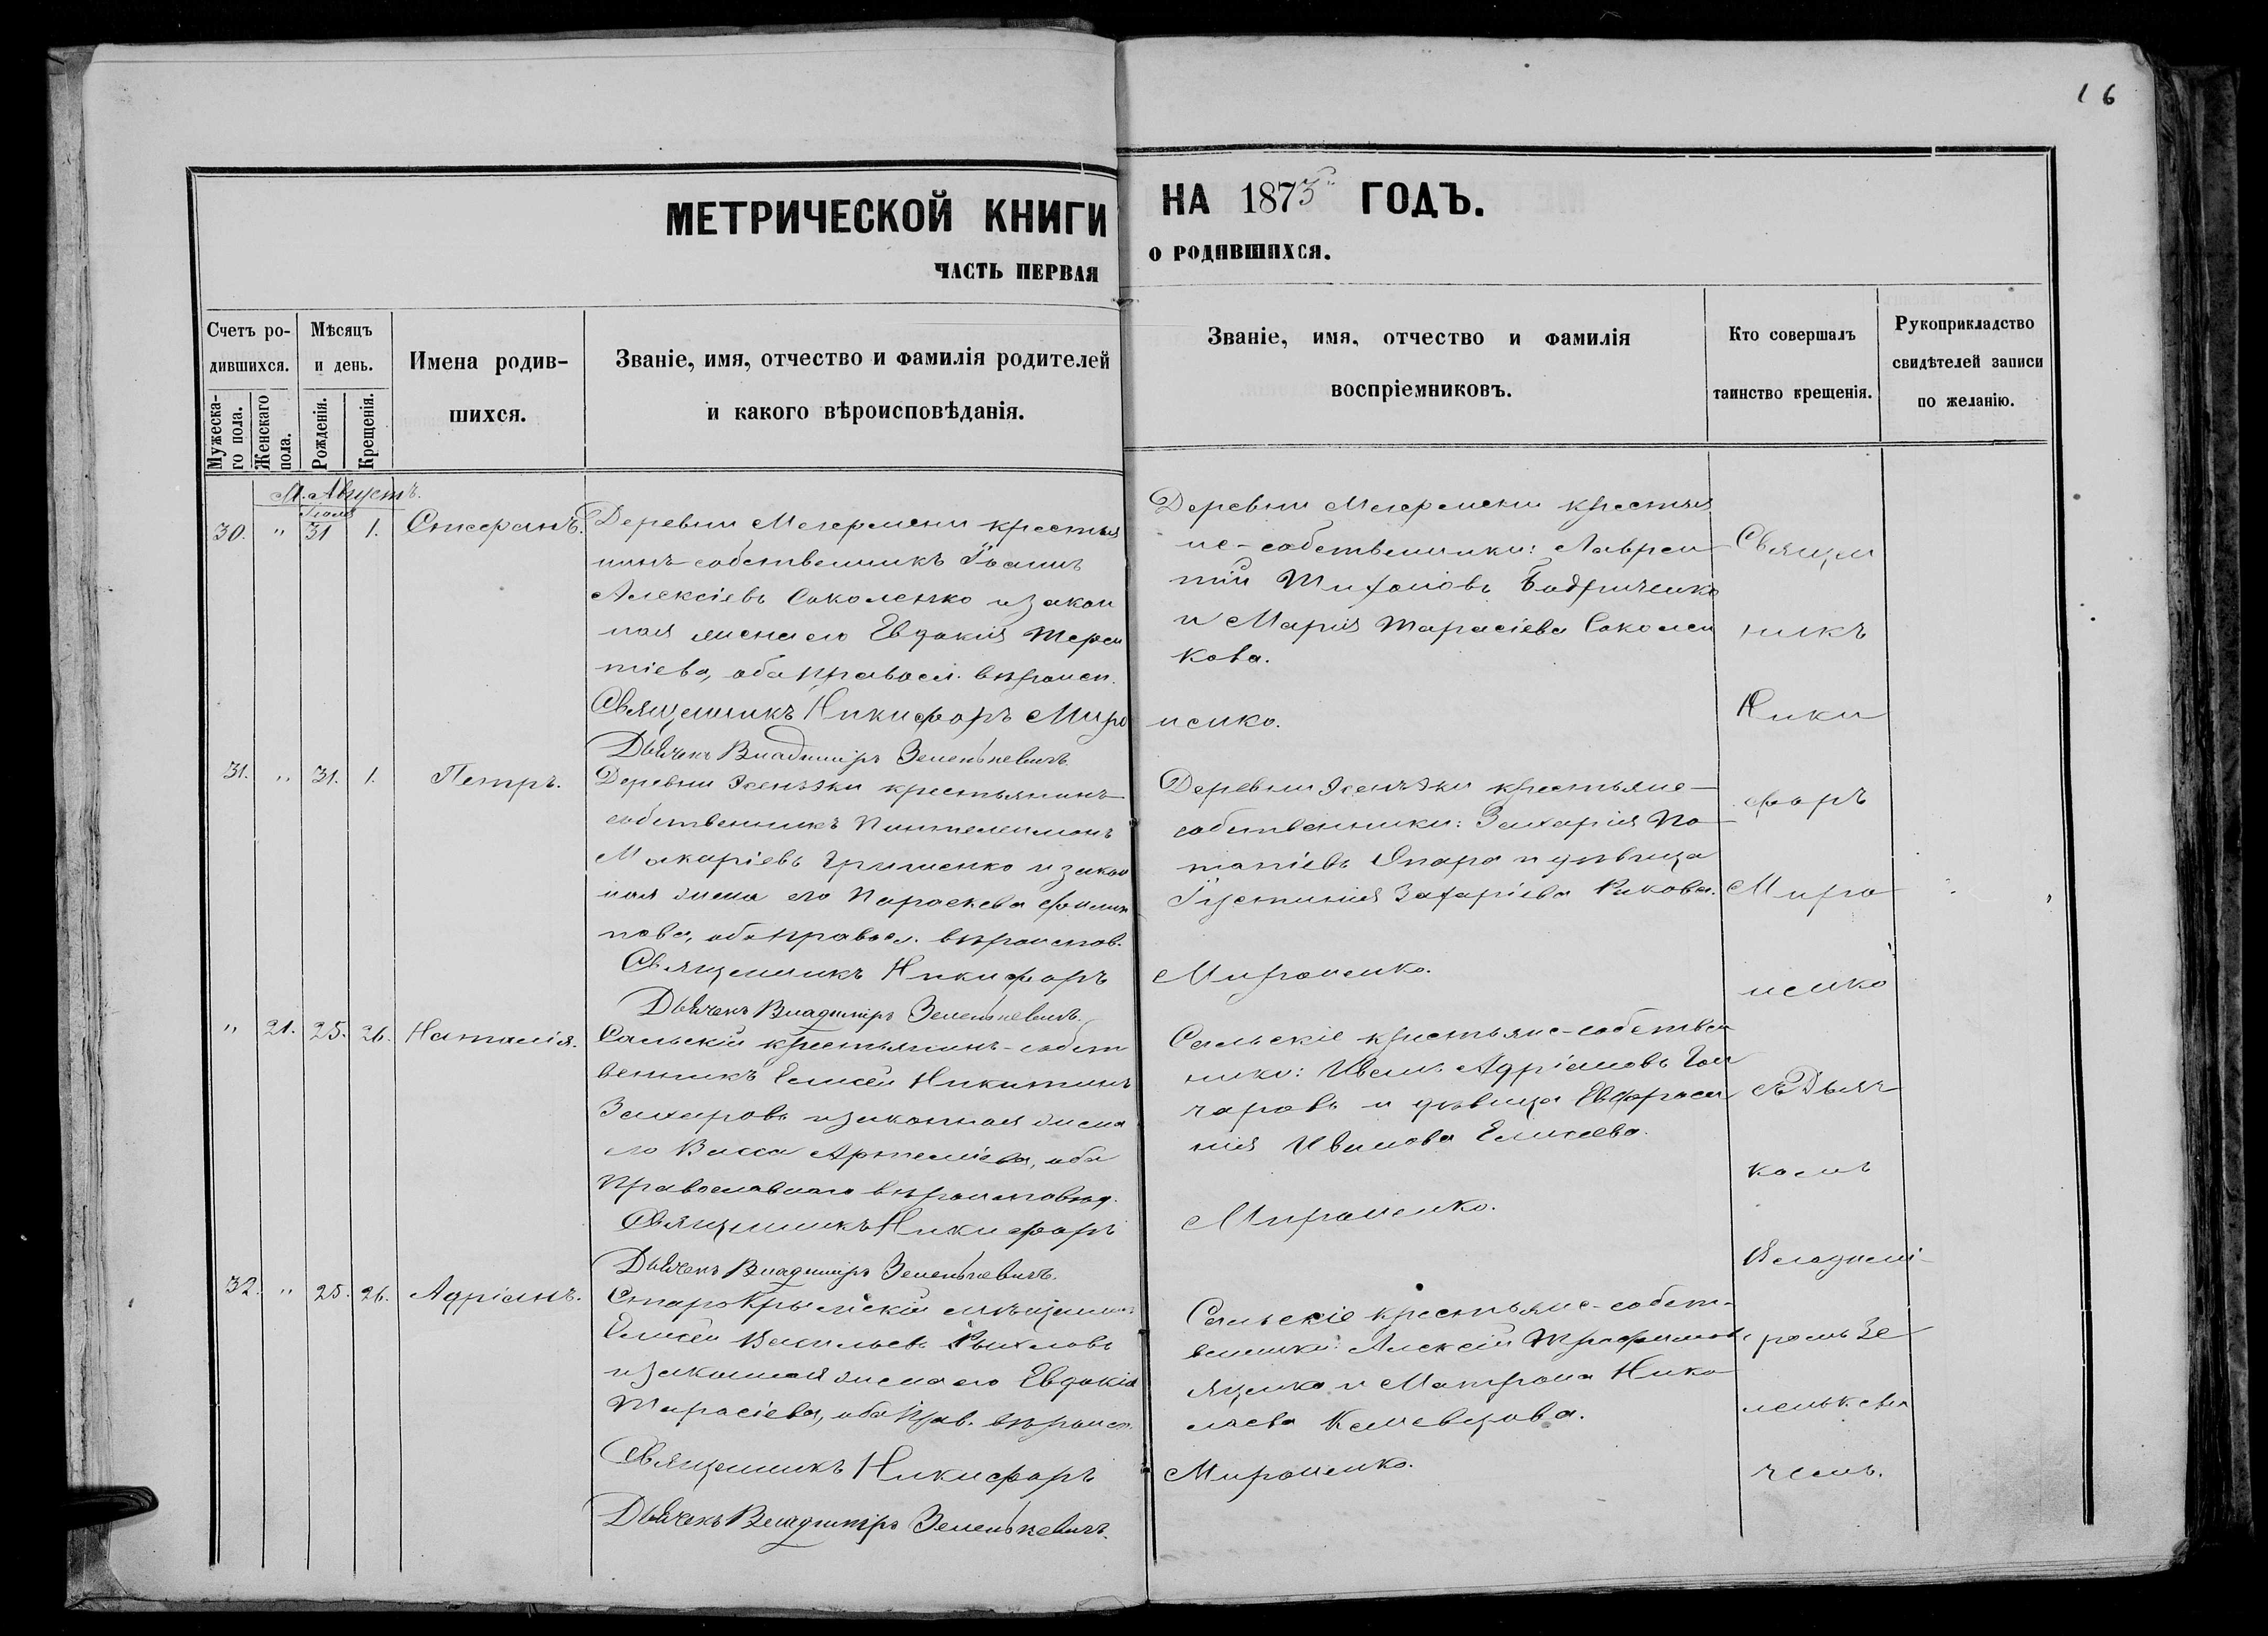 16
МЕТРИЧЕСКОЙ КНИГИ НА 1873 ГОДЪ.
ЧАСТЬ ПЕРВАЯ О РОДИВШИХСЯ.
Счетъ ро-
дившихся.
Мужеска-
го пола.
Женскаго
пола.
Мѣсяцъ
и день.
Рожденія.
Крещенія.
Имена родив-
шихся.
Званіе, имя, отчество и фамилія родителей
и какого вѣроисповѣданія.
Званіе, имя, отчество и фамилія
воспріемниковъ.
Кто совершалъ
таинство крещенія.
Рукоприкладство
свидѣтелей записи
по желанію.
М. Августъ.
Іюля
30. " 31 1. Стефанъ.
Деревни крестья
нинъ-собственникъ Іоаннъ
Алексіевъ Соколенко и закон
ная жена его Евдокія Терен
тіева, оба правосл. вѣроисп.
Священникъ Никифоръ Миро
Дьячекъ Владиміръ Зеленькевичъ.
Деревни крестья
не-собственники: Лаврен
тій Бодриченко
и Марія Тарасіева Соколен
кова.
ненко.
31. " 31. 1. Петръ.
Деревни крестьянинъ
собственникъ Пантелеимонъ
Макаріевъ Гришенко и закон
ная жена его Параскева Филип
пова, оба правосл. вѣроиспов.
Священникъ Никифоръ
Дьячекъ Владиміръ Зеленькевичъ.
Деревни крестьяне-
собственники: Захарія По
тапіевъ Опара и дѣвица
Іустинія Захаріева Рыкова.
Мироненко.
" 21. 25. 26. Наталія.
Сельскій крестьянинъ-собст
венникъ Елисей Никитинъ
Захаровъ и законная жена
его Васса Артеміева, оба
православнаго вѣроисповѣд.
Священникъ Никифоръ
Дьячекъ Владиміръ Зеленькевичъ.
Сельскіе крестьяне-собствен
ники: Иванъ Адріановъ Гон
чаровъ и дѣвица Евфроси
нія Иванова Елисеева.
Мироненко.
32. " 25. 26. Адріанъ.
Старокрымскій мѣщанинъ
Елисей Васильевъ Рыхловъ
и законная жена его Евдокія
Тарасіева, оба прав. вѣроисп.
Священникъ Никифоръ
Дьячекъ Владиміръ Зеленькевичъ.
Сельскіе крестьяне-собст-
венники: Алексій Трофимовъ
Яценко и Матрона Нико
лаева
Мироненко.
Священ
никъ
Ники
форъ
Миро
ненко
съ Дьяч
комъ
Владимі-
ромъ Зе
ленькеви
чемъ.